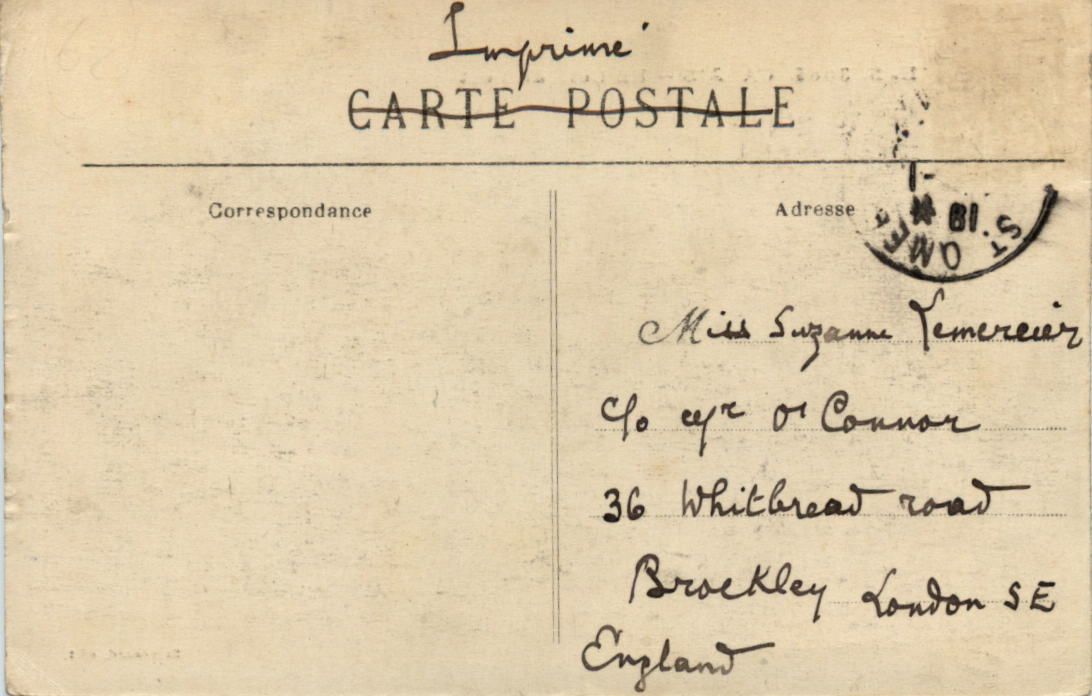 Imprimé
CARTE POSTALE
Correspondance
Adresse
18
ST OMER
Miss Suzanne Lemercier
c/o Mr O'Connor
36 Whitbread road
Brockley London SE
England